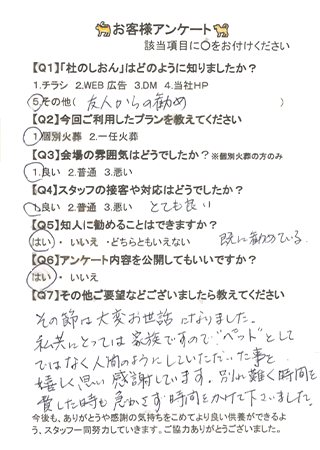 お客様アンケート
該当項目に〇をお付けください
【Q1】「杜のしおん」はどのように知りましたか?
1.チラシ 2.WEB 広告 3.DM 4.当社HP
5.その他( 友人からの勧め )
【Q2】今回ご利用したプランを教えてください
1.個別火葬 2.一任火葬
【Q3】会場の雰囲気はどうでしたか?※個別火葬の方のみ
1.良い 2.普通 3.悪い
【Q4】スタッフの接客や対応はどうでしたか?
1.良い 2.普通 3.悪い とても良い
【Q5】知人に勧めることはできますか?
はい ・ いいえ ・どちらともいえない 既に勧めている。
【Q6】アンケート内容を公開してもいいですか?
はい ・ いいえ
【Q7】その他ご要望などございましたら教えてください
その節は大変お世話になりました。
私共にとっては家族ですので"ペット"として
ではなく人間のようにしていただいた事を
嬉しく思い感謝しています。別れ難く時間を
費した時も急かさず時間をかけて下さいました。
今後も、ありがとうや感謝の気持ちをこめてより良い供養ができるよ
う、スタッフ一同努力していきます。ご協力ありがとうございました。